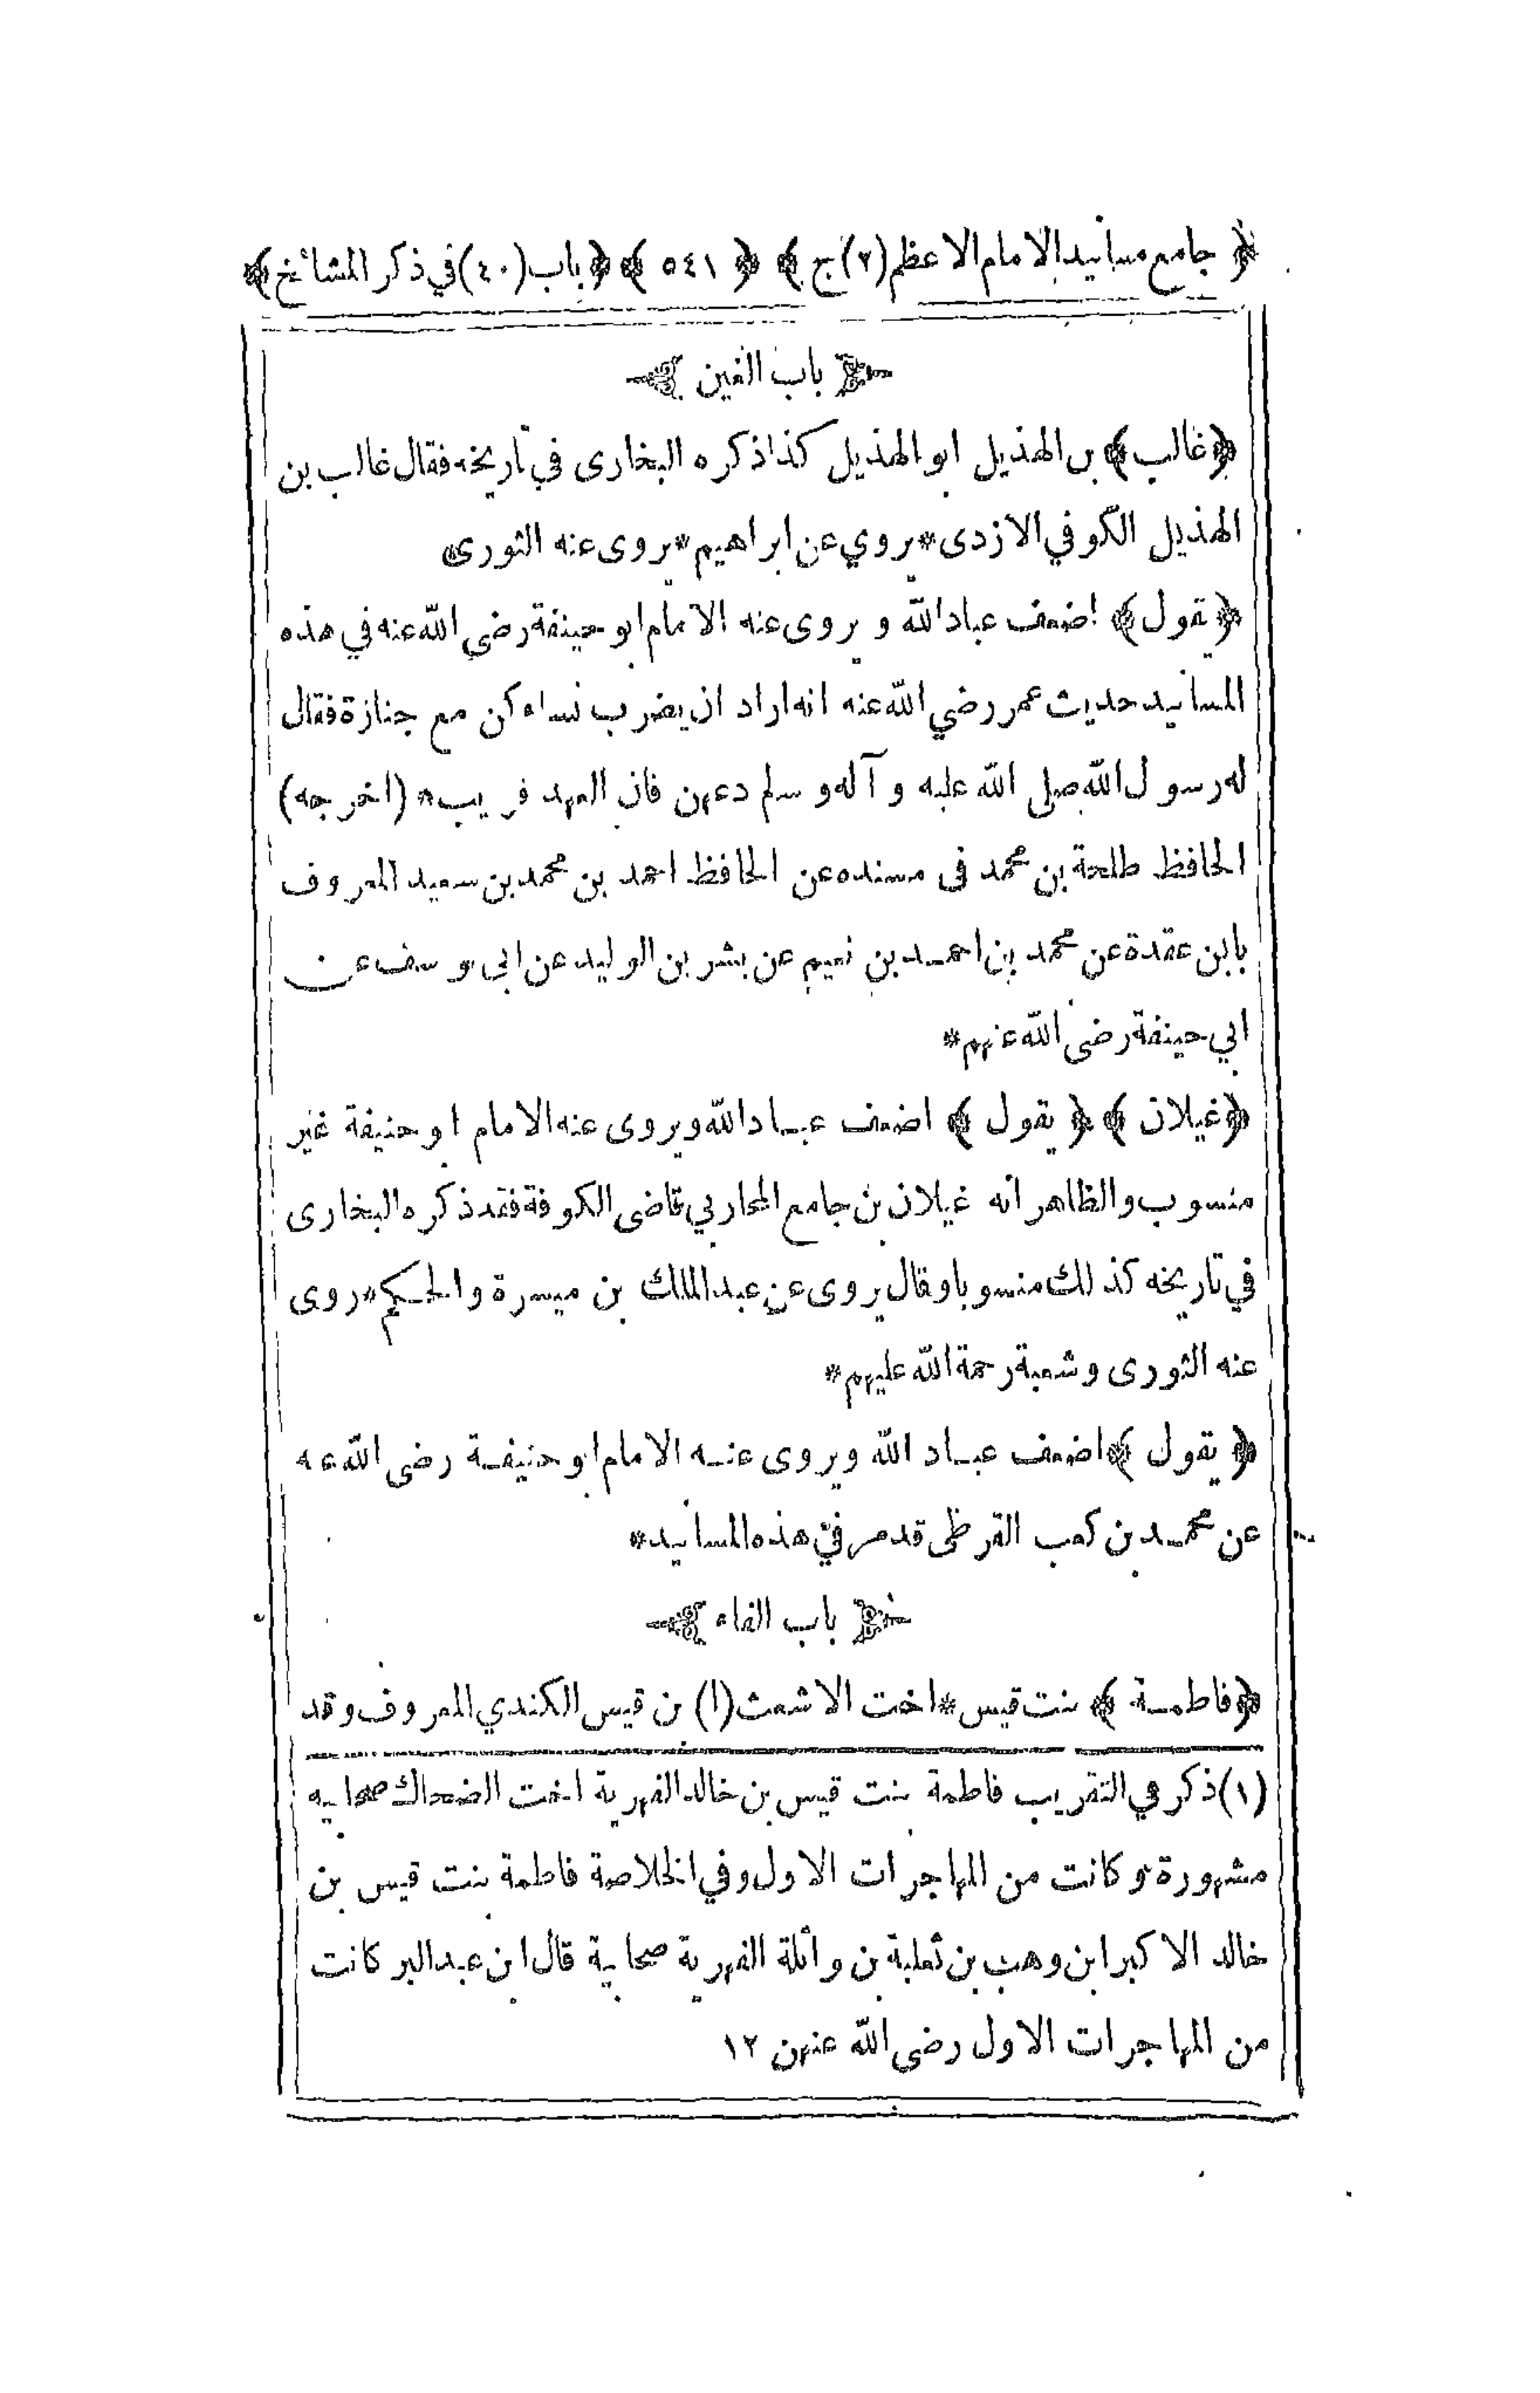 ﴿ جامع مسانيد الامام الاعظم (٢) ج ﴾ ﴿ ٥٤١ ﴾ ﴿ باب (٤٠) في ذكر المشائخ ﴾
باب الغين
﴿ غالب ﴾ بن الهذيل ابو الهذيل كذا ذكره البخارى في تاريخه فقال غالب بن
الهذيل الكوفي الازدى * يروي عن ابراهيم * يروى عنه الثورى *
﴿ يقول ﴾ اضعف عباد الله و يروى عنه الامام ابو حنيفة رضي الله عنه في هذه
المسانيد حديث عمر رضي الله عنه انه اراد ان يضرب نساء كن مع جنازة فقال
له رسول الله صلى الله عليه و آله و سلم دعهن فان العهد قريب * (اخرجه)
الحافظ طلحة بن محمد في مسنده عن الحافظ احمد بن محمد بن سعيد المعروف
بابن عقدة عن محمد بن احمد بن نعيم عن بشر بن الوليد عن ابي يوسف عن
ابي حنيفة رضي الله عنهم *
﴿ غيلان ﴾ ﴿ يقول ﴾ اضعف عباد الله ويروى عنه الامام ابو حنيفة غير
منسوب والظاهر انه غيلان بن جامع المحاربي قاضى الكوفة فقد ذكره البخارى
في تاريخه كذلك منسوبا وقال يروى عن عبد الملك بن ميسرة والحكم * روى
عنه الثورى وشعبة رحمة الله عليهم *
﴿ يقول ﴾ اضعف عباد الله ويروى عنه الامام ابو حنيفة رضى الله عنه
عن محمد بن كعب القرظى قد مر في هذه المسانيد *
باب الفاء
﴿ فاطمة ﴾ بنت قيس * اخت الاشعث (١) بن قيس الكندي المعروف وقد
(١) ذكر في التقريب فاطمة بنت قيس بن خالد الفهرية اخت الضحاك صحابيه
مشهورة و كانت من المهاجرات الاول وفي الخلاصة فاطمة بنت قيس بن
خالد الاكبر ابن وهب بن ثعلبة بن وائلة الفهرية صحابية قال ابن عبد البر كانت
من المهاجرات الاول رضى الله عنهن ١٢